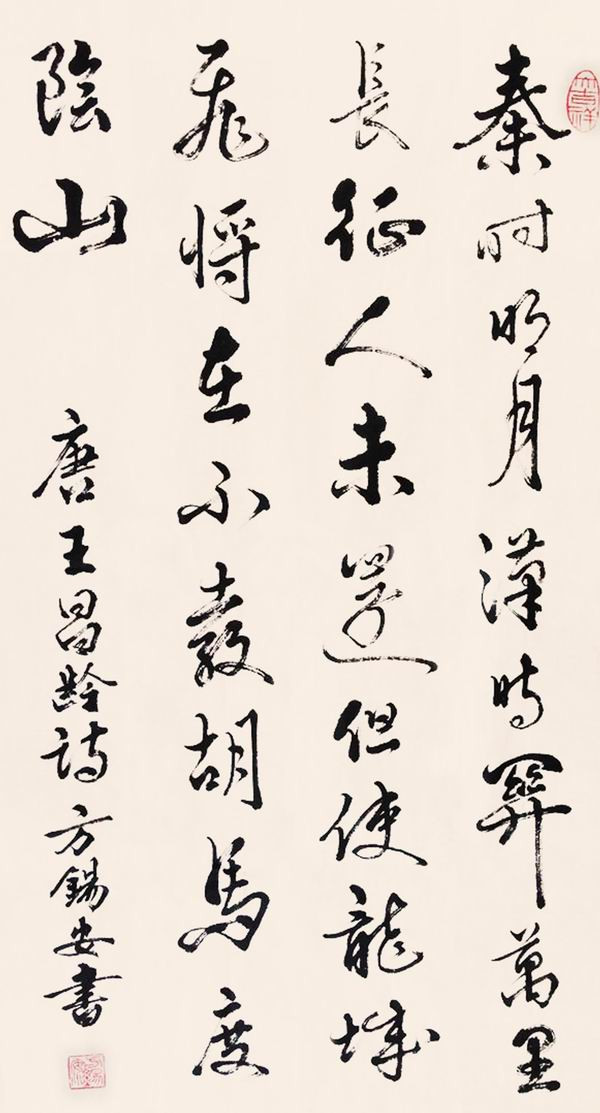 秦时明月漢時關萬里
長征人未還但使龍城
飛將在不教胡馬度
陰山
唐王昌齡詩方錫安書